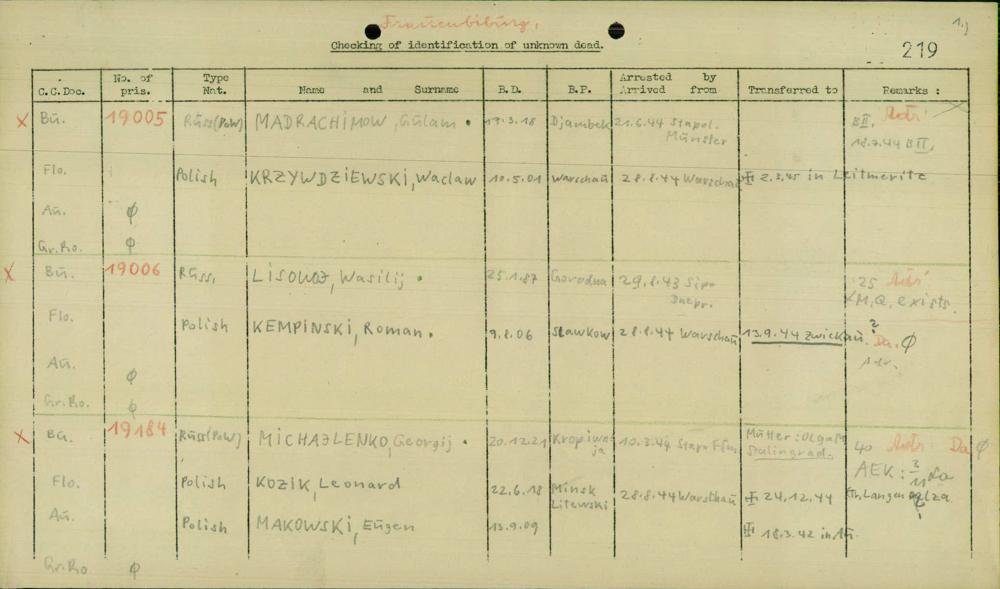 Frauenbiburg,
1.)
Checking of identification of unknown dead.
219
C.C.Doc. No. of pris. Type Nat. Name and Surname B.D. B.P. Arrested by Arrived from Transferred to Remarks :
Bu. 19005 Russ(PoW) MADRACHIMOW, Gulam . 13.3.18 Djambek 21.6.44 Stapol. Münster BII,
18.7.44 BII,
Flo. Polish KRZYWDZIEWSKI, Waclaw 10.5.01 Warschau 28.8.44 Warschau 2.2.45 in Leitmeritz
Au. φ
Gr.Ro. φ
Bu. 19006 Russ, Wasilij . 25.1.87 Gorodna 29.8.43 Sipo Dnepr. 25
exists.
Flo. Polish KEMPINSKI, Roman. 9.8.06 Slawkow 28.8.44 Warschau 13.9.44 Zwickau. ? Da. φ
Au. φ
Gr.Ro. φ
Bu. 19184 Russ(PoW) MICHAJLENKO, Georgij . 20.12.21 Kropiwnja 10.3.44 Mutter: Olga
Stalingrad. 40 Da φ
AEK :
Flo. Polish KOZIK, Leonard 22.6.18 Minsk Litewski 28.8.44 Warschau 24.12.44
Au. Polish MAKOWSKI, Eugen 13.9.09 18.3.42 in
Gr.Ro φ